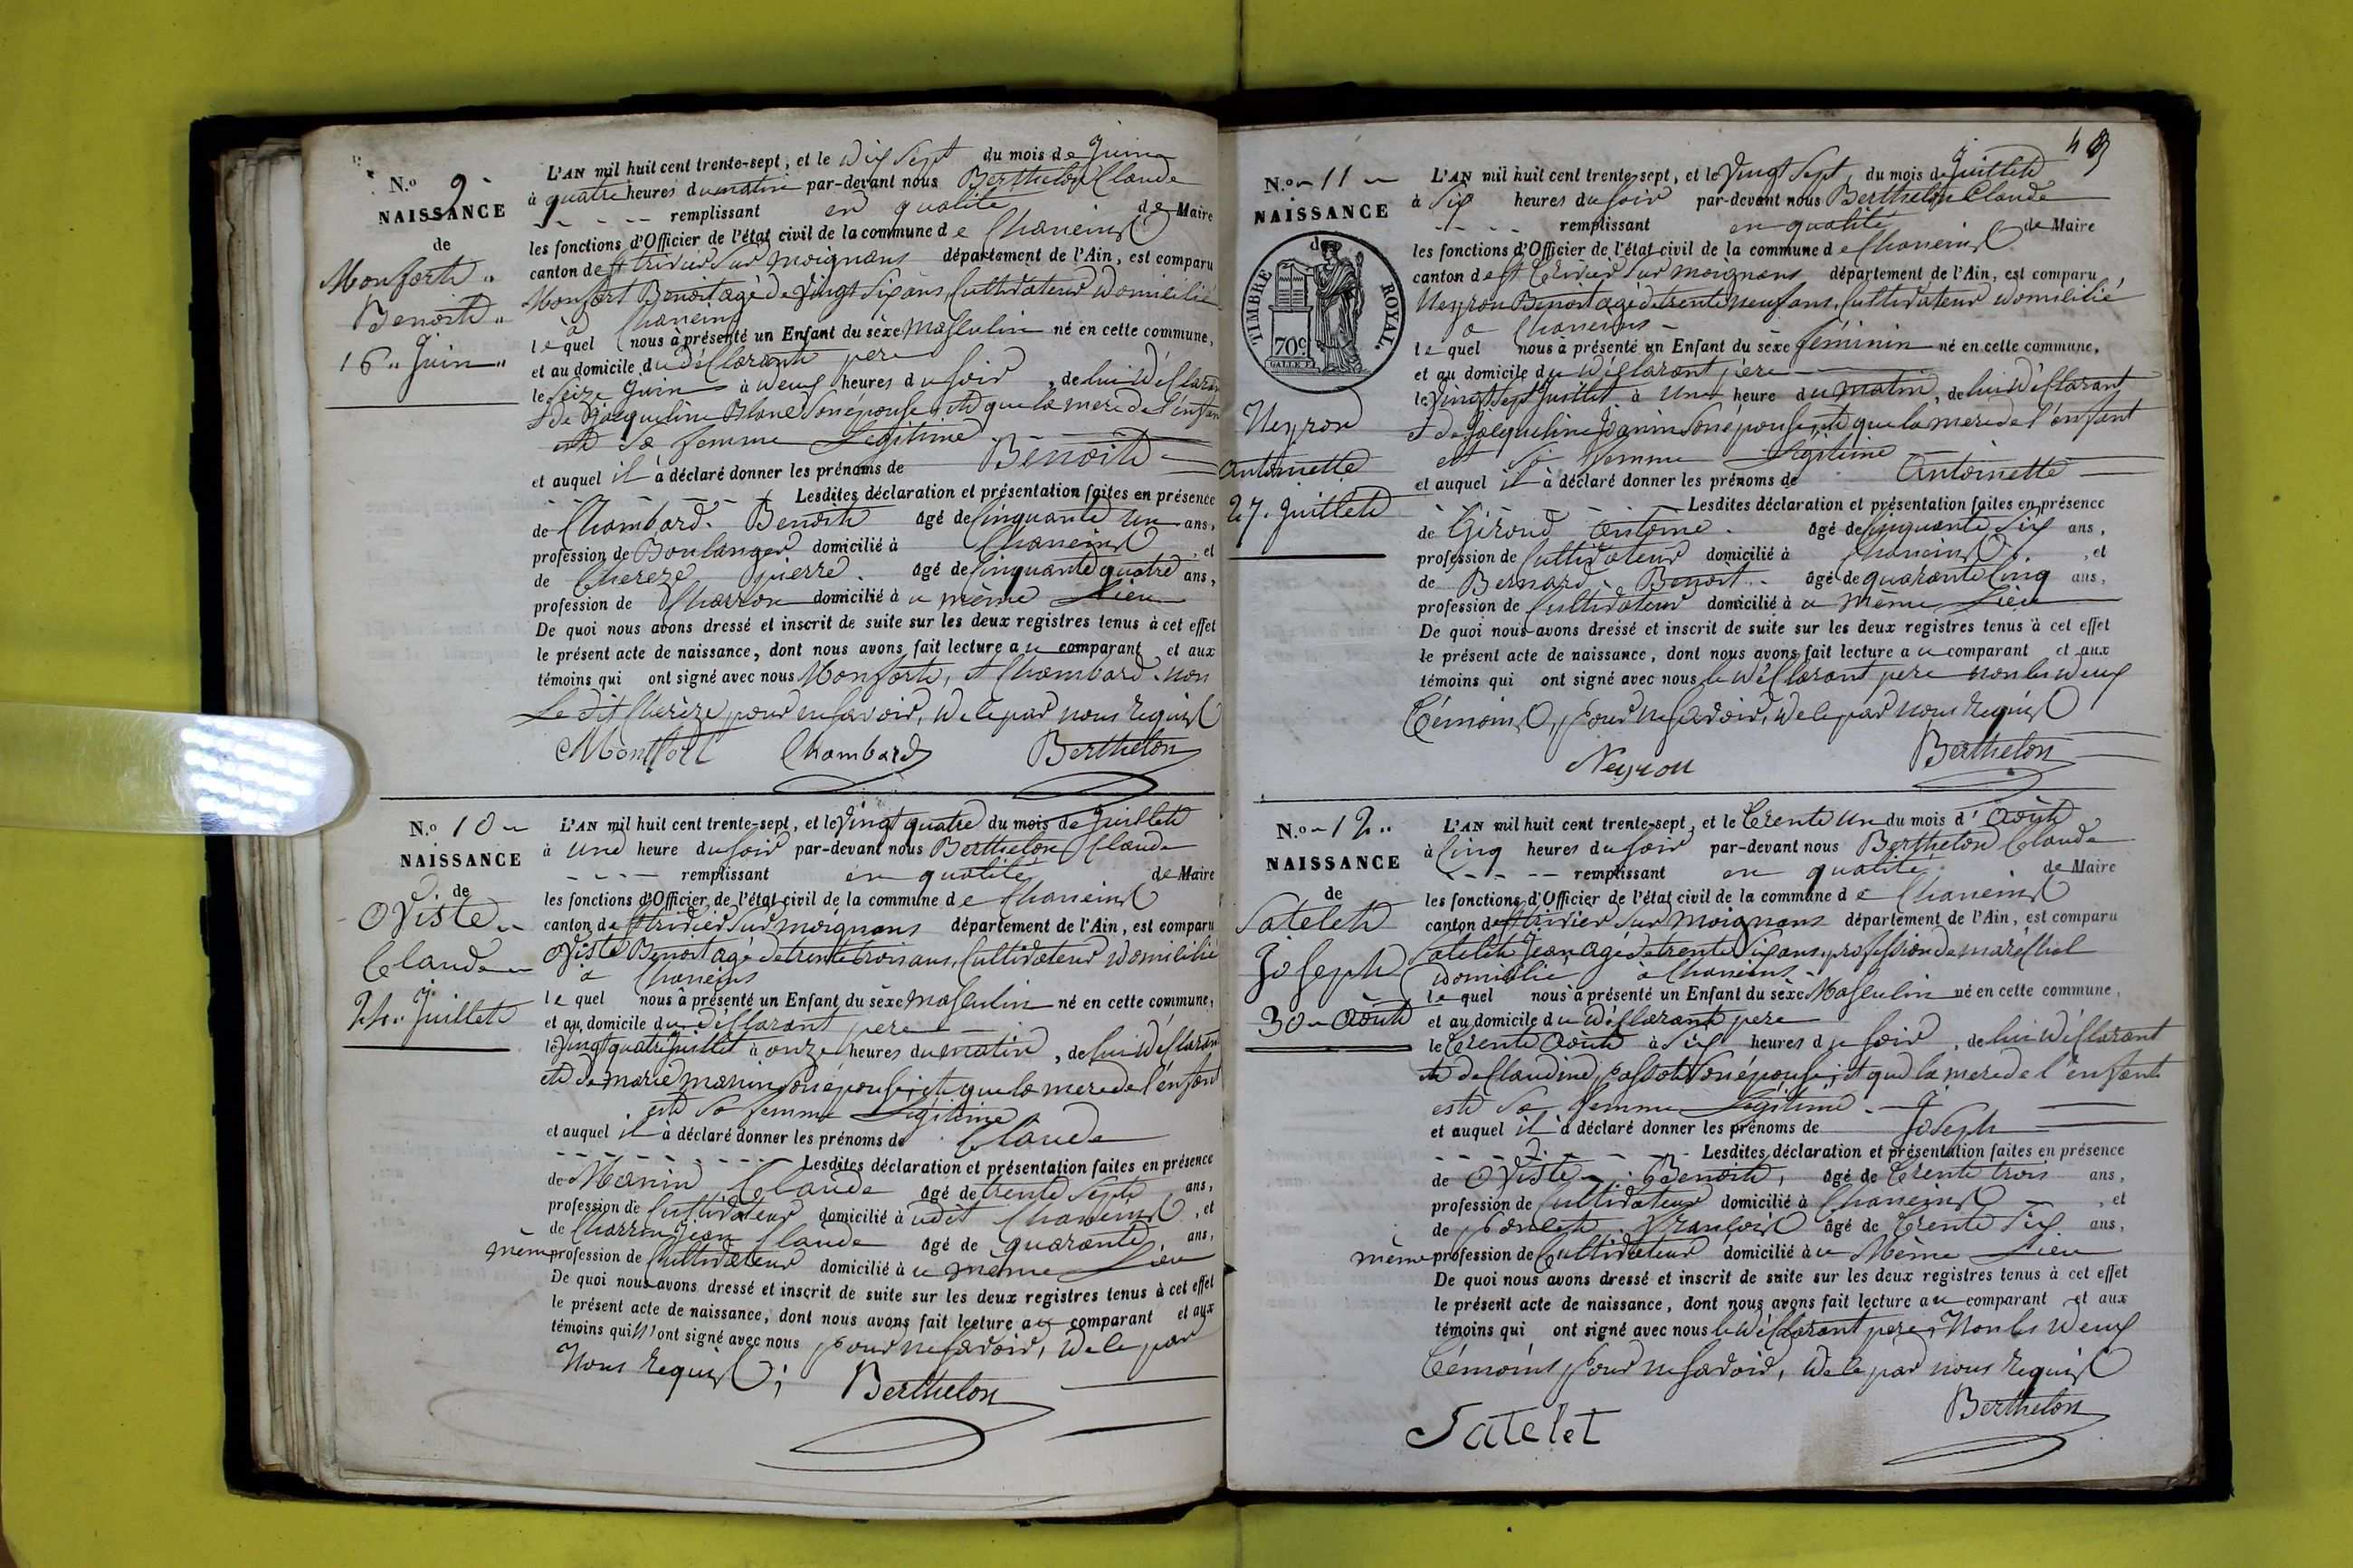 N.º 9
NAISSANCE
de
Monforth
Benoith
16 Juin
L'AN mil huit cent trente-sept, et le dix Sept du mois de Juin
à quatre heures du matin par-devant nous Berthelon Claude
remplissant en qualité de Maire
les fonctions d'Officier de l'état civil de la commune de Chaneins
canton de St trivier Sur moignans département de l'Ain, est comparu
Monfort Benoit agé de vingt Six ans, Cultivateur domicilié
à Chaneins
lequel nous à présenté un Enfant du sèxe Masculin né en cette commune,
et au domicile du déclarant pere
le Seize Juin à deux heures du Soir, de lui déclarant
et de Jacqueline Blanc Son épouse, et que la mere de l'enfant
est Sa femme Légitime
et auquel il à déclaré donner les prénoms de Benoith
Lesdites déclaration et présentation faites en présence
de Chambard Benoith âgé de Cinquante un ans,
profession de Boulanger domicilié à Chaneins, et
de Chereze pierre âgé de Cinquante quatre ans,
profession de Charron domicilié à u même Lieu
De quoi nous avons dressé et inscrit de suite sur les deux registres tenus à cet effet
le présent acte de naissance, dont nous avons fait lecture au comparant et aux
témoins qui ont signé avec nous Monforth, et Chambard. non
Le dit Cherèze pour ne savoir, de ce par nous requis
Montfort Chambard Berthelon
N.º 10
NAISSANCE
de
Oviste
Claude
24 Juillet
L'AN mil huit cent trente-sept, et le Vingt quatre du mois de Juillet
à une heure du Soir par-devant nous Berthelon Claude
remplissant en qualité de Maire
les fonctions d'Officier de l'état civil de la commune de Chaneins
canton de St trivier Sur moignans département de l'Ain, est comparu
Oviste Benoit agé de trente trois ans, Cultivateur domicilié
à Chaneins
lequel nous à présenté un Enfant du sèxe masculin né en cette commune,
et au domicile du déclarant pere
le Vingt quatre Juillet à onze heures du matin, de lui déclarant
et de marie manin Son épouse, et que la mere de l'enfant
est Sa femme Légitime
et auquel il à déclaré donner les prénoms de Claude
Lesdites déclaration et présentation faites en présence
de Manin Claude âgé de trente Sept ans,
profession de Cultivateur domicilié à udit Chaneins, et
de Charron Jean Claude âgé de quarante ans,
même profession de Cultivateur domicilié à u même Lieu
De quoi nous avons dressé et inscrit de suite sur les deux registres tenus à cet effet
le présent acte de naissance, dont nous avons fait lecture au comparant et aux
témoins qui n'ont signé avec nous pour ne savoir, de ce par
Nous requis; Berthelon
N.º 11
NAISSANCE
de
TIMBRE ROYAL.
70c
Neyron
Antoinette
27. Juillet
L'AN mil huit cent trente-sept, et le Vingt Sept du mois de Juillet
à Six heures du Soir par-devant nous Berthelon Claude
remplissant en qualité de Maire
les fonctions d'Officier de l'état civil de la commune de Chaneins
canton de St Trivier Sur moignans département de l'Ain, est comparu
Neyron Benoit agé de trente neuf ans, Cultivateur domicilié
à Chaneins
lequel nous à présenté un Enfant du sèxe féminin né en cette commune,
et au domicile du déclarant père
le Vingt Sept Juillet à Une heure du matin, de lui déclarant
et de Jacqueline Janin Son épouse, et que la mere de l'enfant
est Sa femme Légitime
et auquel il à déclaré donner les prénoms de Antoinette
Lesdites déclaration et présentation faites en présence
de Giroud Antoine âgé de Cinquante Six ans,
profession de Cultivateur domicilié à Chaneins, et
de Bernard Benoit âgé de quarante Cinq ans,
profession de Cultivateur domicilié à u même Lieu
De quoi nous avons dressé et inscrit de suite sur les deux registres tenus à cet effet
le présent acte de naissance, dont nous avons fait lecture au comparant et aux
témoins qui ont signé avec nous le déclarant pere non les deux
Témoins, pour ne Savoir, de ce par nous requis
Neyron Berthelon
N.º 12
NAISSANCE
de
Sateleth
Joseph
30 Août
L'AN mil huit cent trente-sept, et le Trente Un du mois d'Août
à Cinq heures du Soir par-devant nous Berthelon Claude
remplissant en qualité de Maire
les fonctions d'Officier de l'état civil de la commune de Chaneins
canton de St trivier Sur moignans département de l'Ain, est comparu
Sateleth Jean agé de trente Six ans, profession de maréchal
domicilié à Chaneins
lequel nous à présenté un Enfant du sèxe Masculin né en cette commune,
et au domicile du déclarant pere
le Trente Août à Six heures du Soir, de lui déclarant
et de Claudine passot Son épouse, et que la mere de l'enfant
est Sa femme Légitime
et auquel il à déclaré donner les prénoms de Joseph
Lesdites déclaration et présentation faites en présence
de Oviste Benoith, âgé de Trente trois ans,
profession de Cultivateur domicilié à Chaneins, et
de François âgé de Trente Six ans,
même profession de Cultivateur domicilié à u Même Lieu
De quoi nous avons dressé et inscrit de suite sur les deux registres tenus à cet effet
le présent acte de naissance, dont nous avons fait lecture au comparant et aux
témoins qui ont signé avec nous le déclarant pere, Non les deux
Témoins pour ne Savoir, de ce par nous requis
Berthelon
Satelet